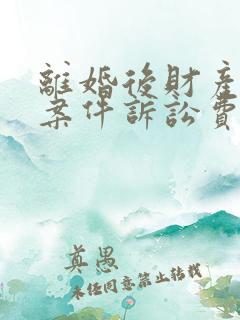 離婚後財產
案件訴訟費
真愚
未经同意禁止转载